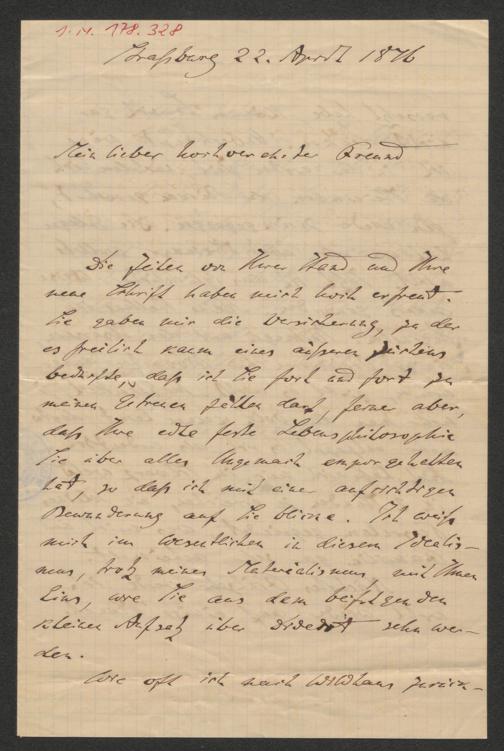 I.N. 178.328
Straßburg 22. April 1876
Mein lieber hochverehrter Freund
Die Zeilen von Ihrer Hand und Ihre
neue Schrift haben mich hoch erfreut.
Sie gaben mir die Versicherung, zu der
es freilich kaum eines äußeren Zeichens
bedurfte, daß ich Sie fort und fort zu
meinen Getreuen zählen darf, ferner aber,
daß Ihre edle feste Lebensphilosophie
Sie über alles Ungemach empor gehalten
hat, so daß ich mit einer aufrichtigen
Bewunderung auf Sie blicke. Ich weiß
mich im Wesentlichen in diesem Idealis-
mus, trotz meines Materialismus, mit Ihnen
Eins, wie Sie aus dem beifolgenden
kleinen Aufsatz über Diderot sehn wer-
den.
Wie oft ich nach Wildhaus zurück-